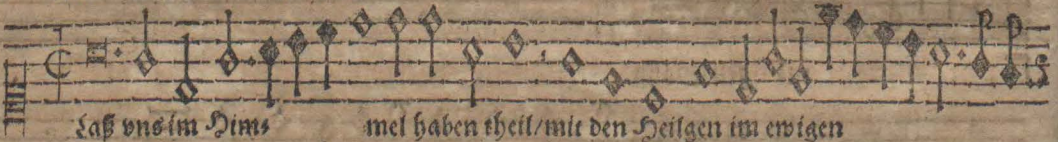 Laß vns im Him⸗ mel haben theil/mit den Heilgen im ewigen